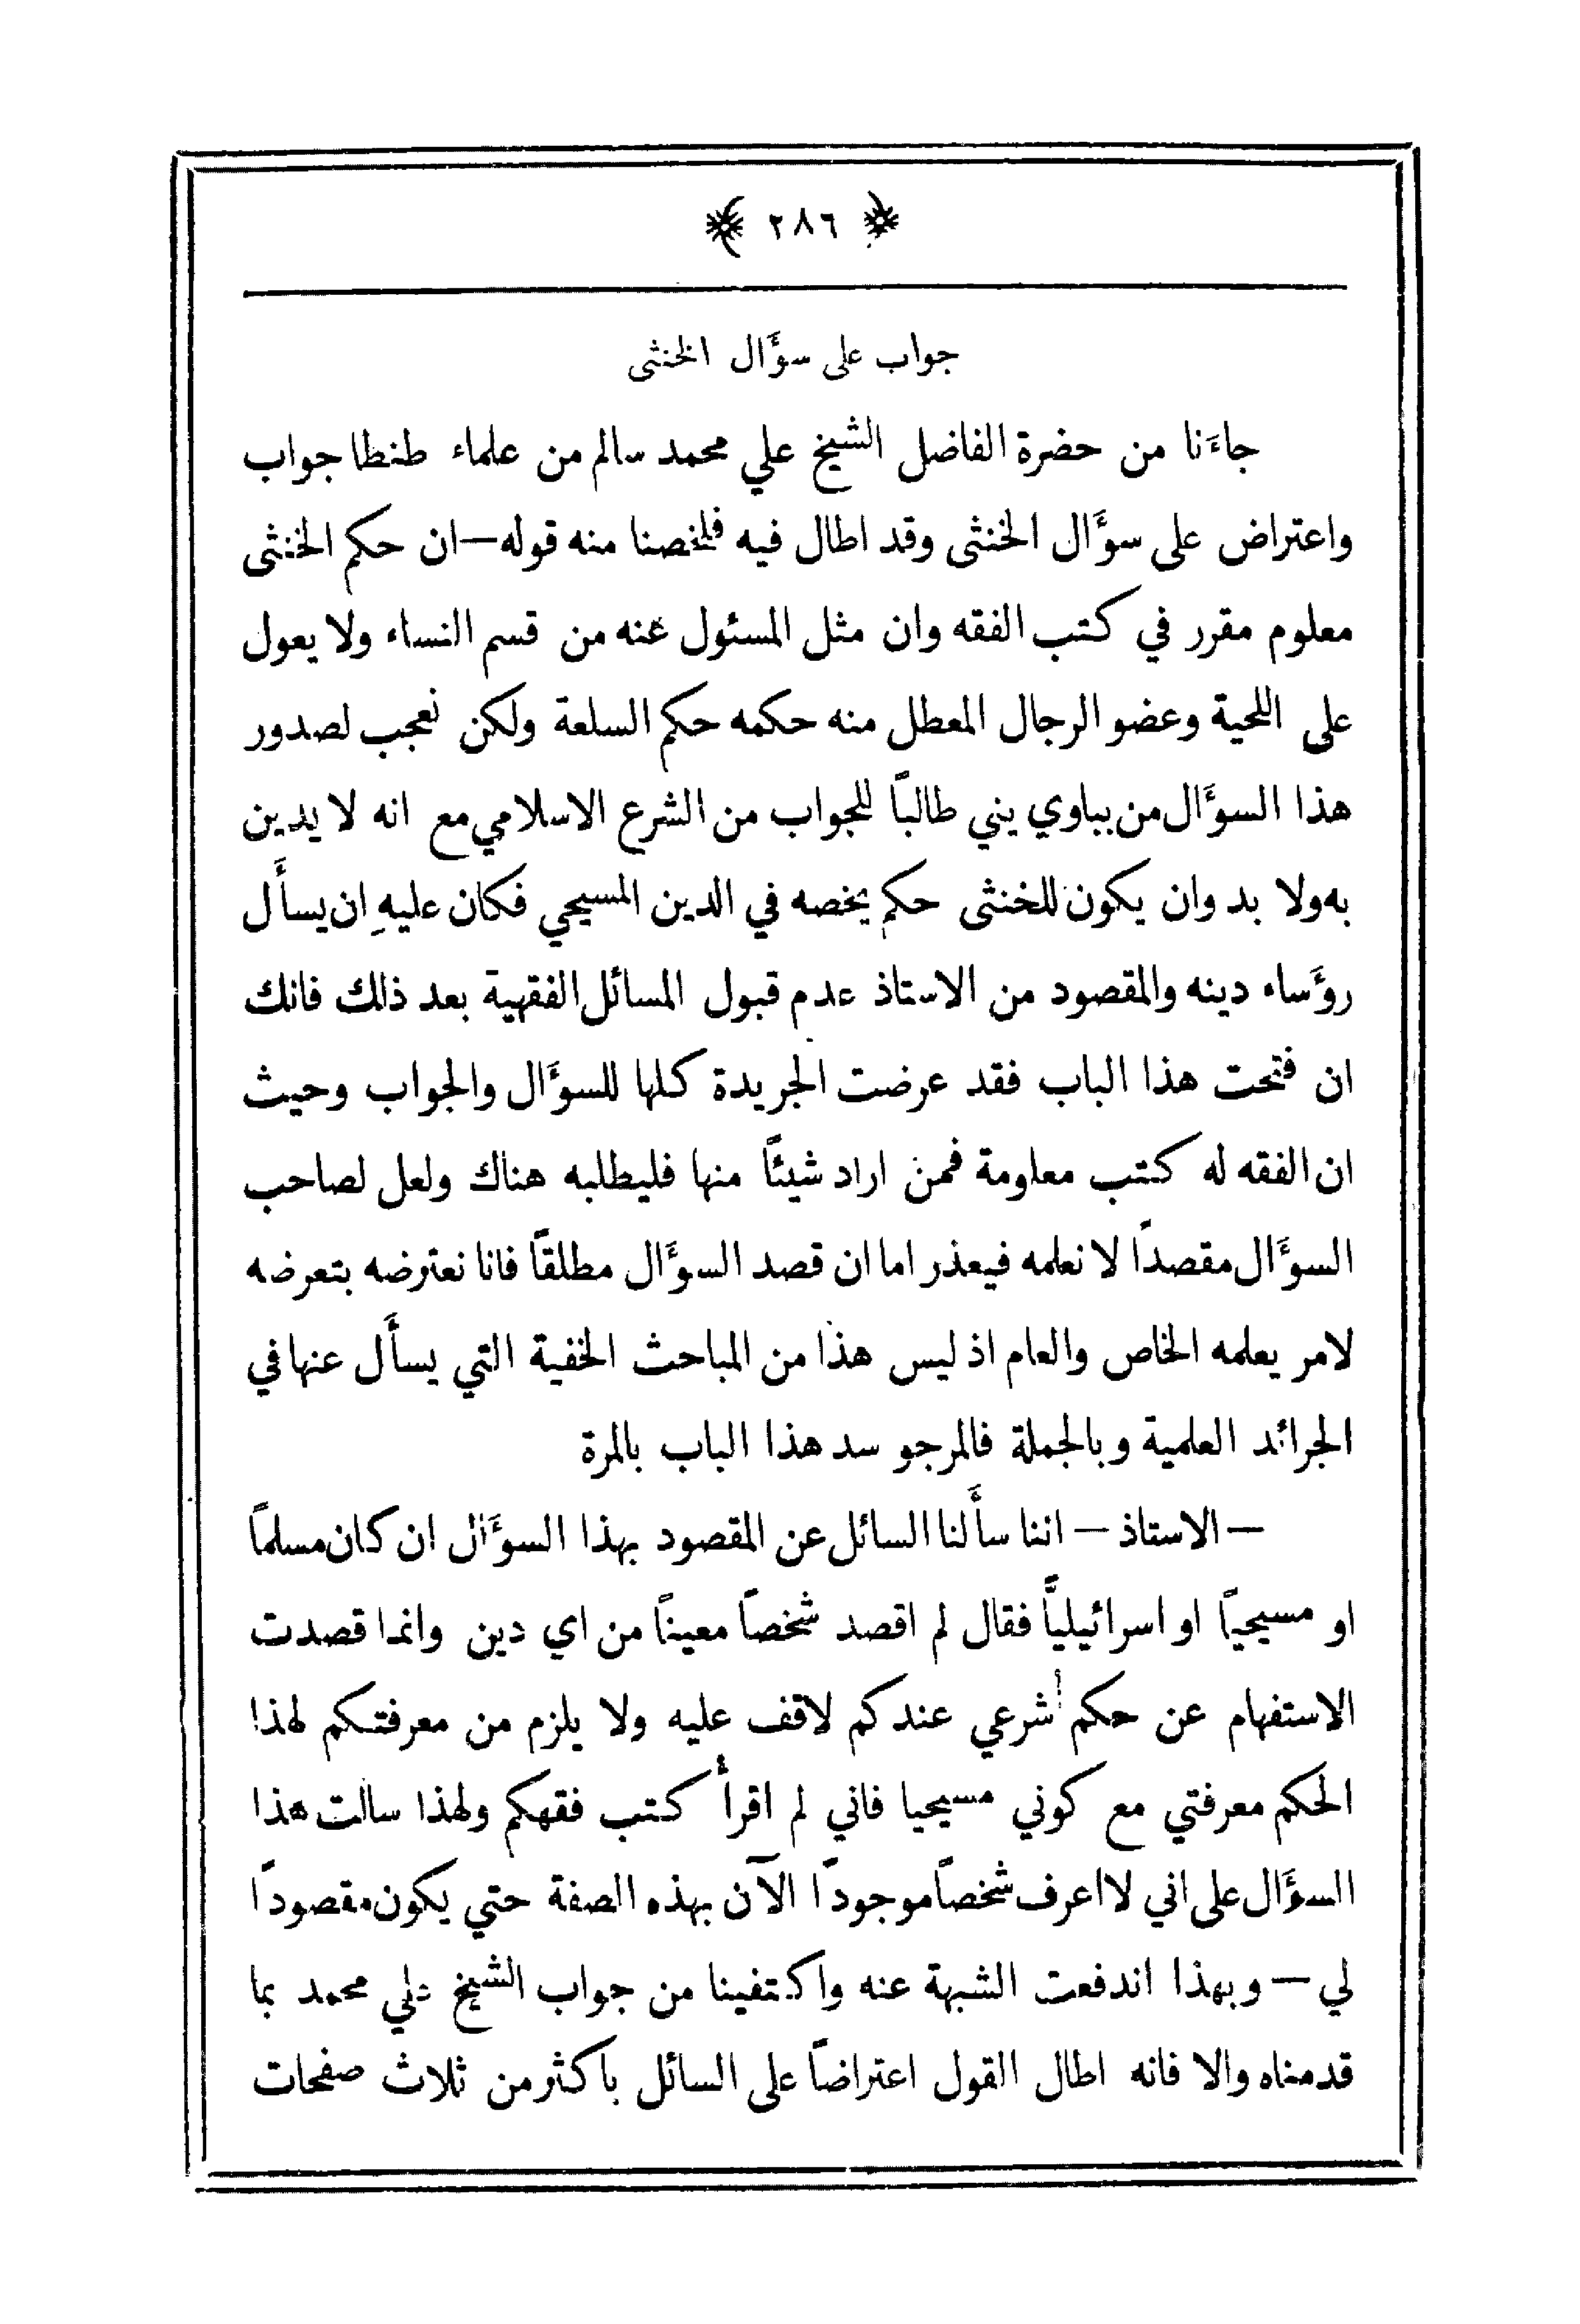 ٢٨٦
جواب على سؤَال الخنثى
جاءَنا من حضرة الفاضل الشيخ علي محمد سالم من علماء طنطا جواب
واعتراض على سؤَال الخنثى وقد اطال فيه فلخصنا منه قوله—ان حكم الخنثى
معلوم مقرر في كتب الفقه وان مثل المسئول عنه من قسم النساء ولا يعول
على اللحية وعضو الرجال المعطل منه حكمه حكم السلعة ولكن نعجب لصدور
هذا السؤَال من بباوي يني طالباً للجواب من الشرع الاسلامي مع انه لا يدين
به ولا بد وان يكون للخنثى حكم يخصه في الدين المسيحي فكان عليهِ ان يسأَل
روَّساء دينه والمقصود من الاستاذ عدم قبول المسائل الفقهية بعد ذلك فانك
ان فتحت هذا الباب فقد عرضت الجريدة كلها للسؤَال والجواب وحيث
ان الفقه له كتب معلومة فمن اراد شيئاً منها فليطلبه هناك ولعل لصاحب
السؤَال مقصداً لا نعلمه فيعذر اما ان قصد السؤَال مطلقاً فانا نعترضه بتعرضه
لامر يعلمه الخاص والعام اذ ليس هذا من المباحث الخفية التي يسأَل عنها في
الجرائد العلمية وبالجملة فالمرجو سد هذا الباب بالمرة
— الاستاذ — اننا سأَلنا السائل عن المقصود بهذا السؤَال ان كان مسلماً
او مسيحياً او اسرائيلياً فقال لم اقصد شخصاً معيناً من اي دين وانما قصدت
الاستفهام عن حكم شرعي عندكم لاقف عليه ولا يلزم من معرفتكم لهذا
الحكم معرفتي مع كوني مسيحيا فاني لم اقرأ كتب فقهكم ولهذا سالت هذا
السؤَال على اني لا اعرف شخصاً موجوداً الآن بهذه الصفة حتي يكون مقصوداً
لي — وبهذا اندفعت الشبهة عنه واكتفينا من جواب الشيخ علي محمد بما
قدمناه والا فانه اطال القول اعتراضاً على السائل باكثر من ثلاث صفحات